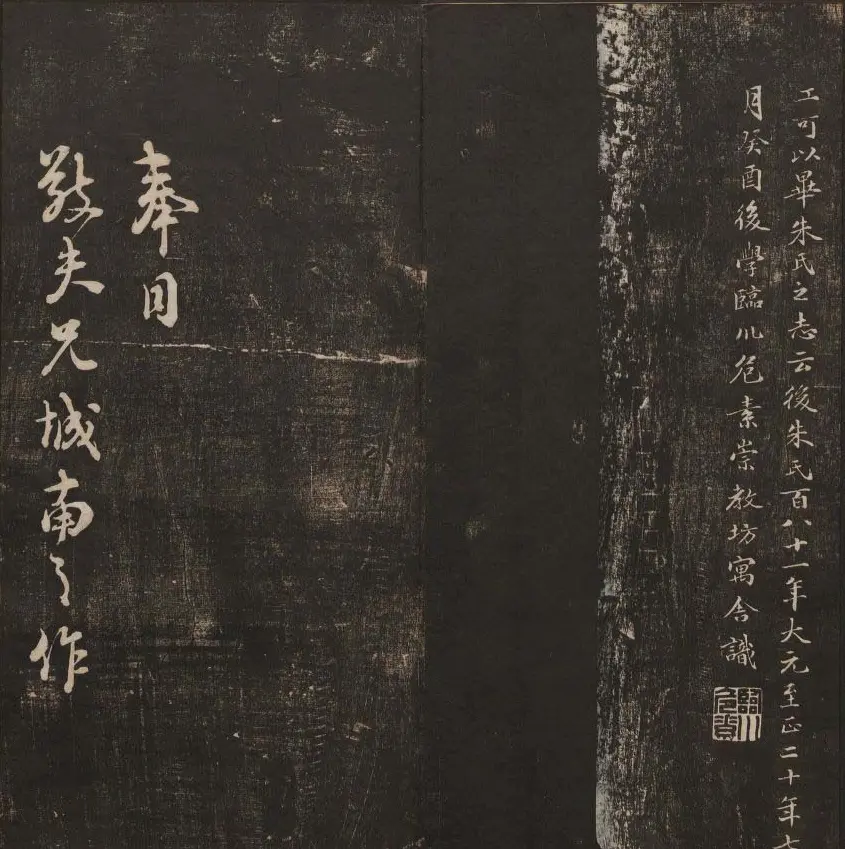 工可以畢朱氏之志云後朱氏百八十一年大元至正二十年七
月癸酉後學臨川危素崇教坊寓舍識
奉同
敬夫兄城南之作